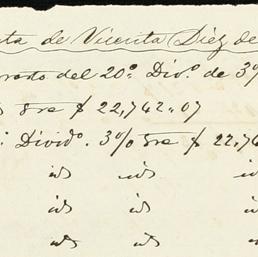 ta de Vicenta Diéz de
rosto del 20º. Divº. de 3%
s sre $ 22,742.07
" Dividº. 3% sre $ 22,74
id id id
id id
id id id